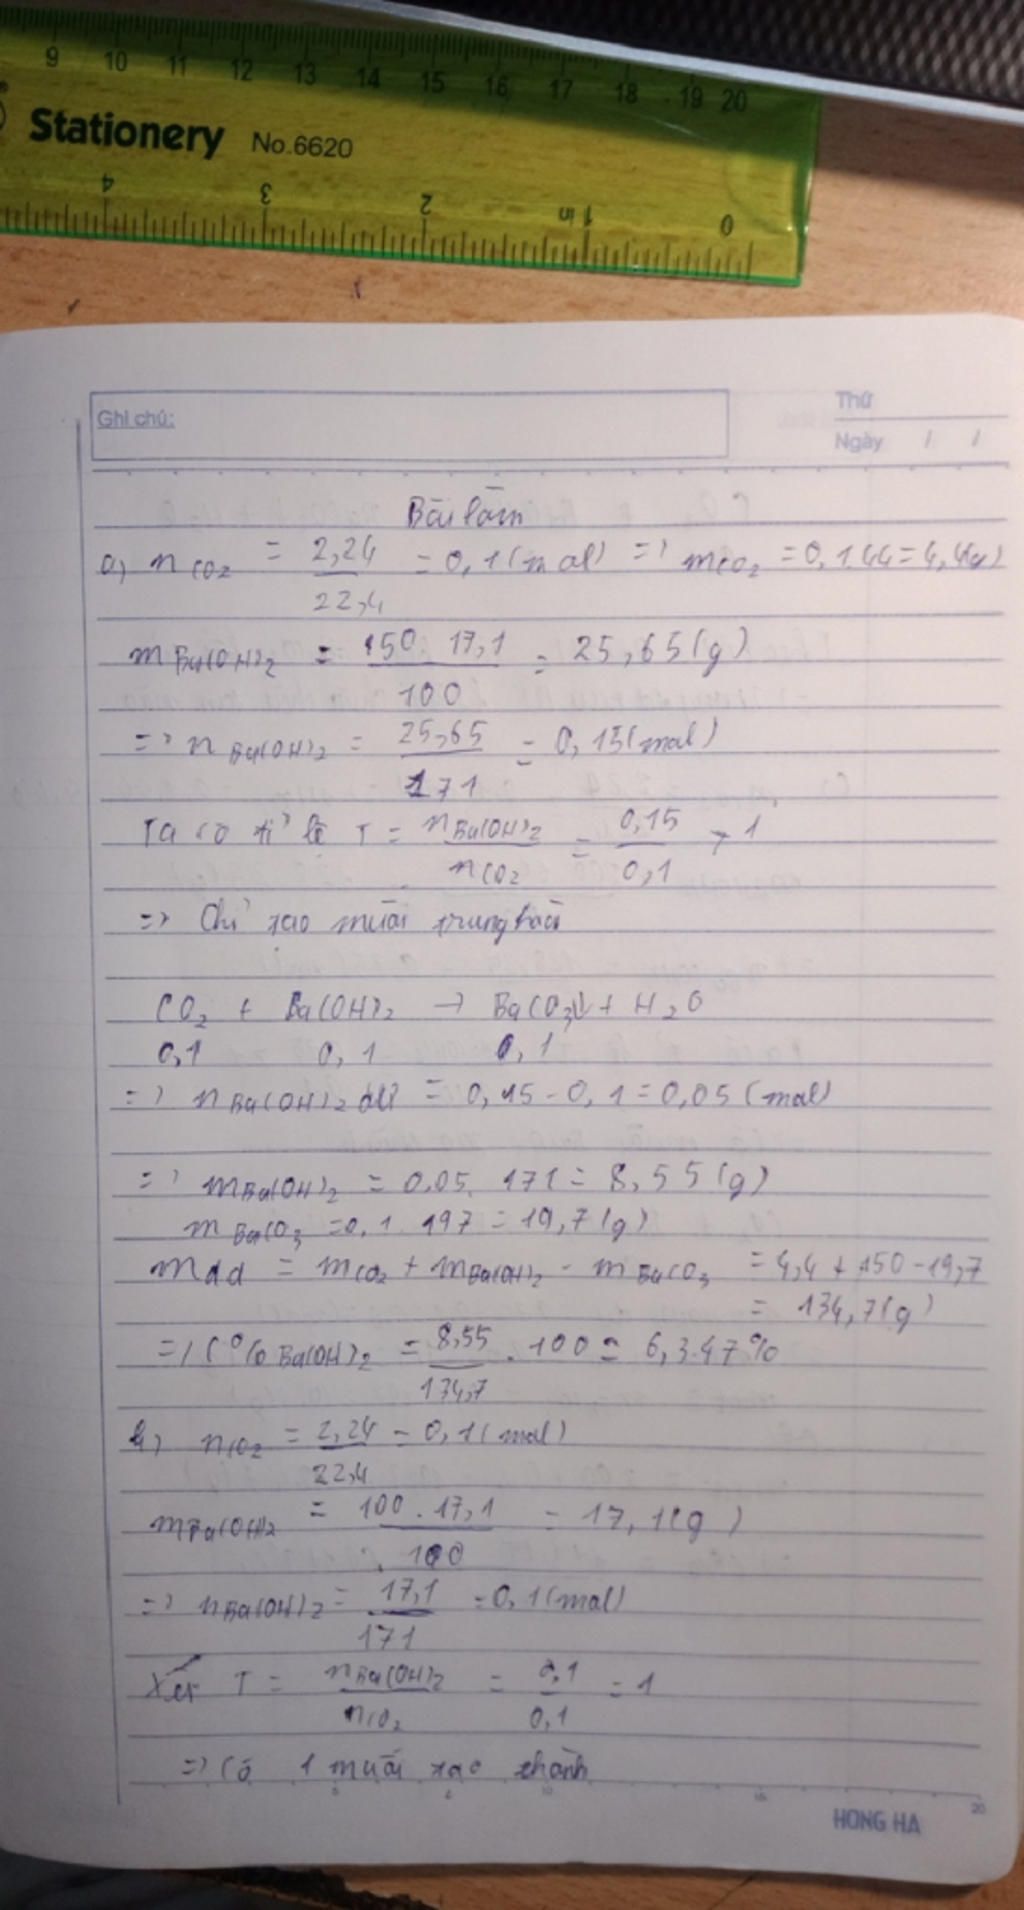 9 10 11 12 13 14 15 16 17 18 19 20
Stationery No.6620
4 3 2 1 in 0
Ghi chú:
Thứ
Ngày / /
Bài làm
a) nCO2 = 2,24/22,4 = 0,1 (mol) => mCO2 = 0,1.44 = 4,4(g)
mBa(OH)2 = 150.17,1/100 = 25,65(g)
=> nBa(OH)2 = 25,65/171 = 0,15(mol)
Ta có tỉ lệ T = nBa(OH)2/nCO2 = 0,15/0,1 > 1
=> Chỉ tạo muối trung hòa
CO2 + Ba(OH)2 → BaCO3↓ + H2O
0,1 0,1 0,1
=> nBa(OH)2 dư = 0,15 - 0,1 = 0,05 (mol)
=> mBa(OH)2 = 0,05.171 = 8,55(g)
mBaCO3 = 0,1.197 = 19,7(g)
mdd = mCO2 + mBa(OH)2 - mBaCO3 = 4,4 + 150 - 19,7
= 134,7(g)
=> C%Ba(OH)2 = 8,55/134,7 . 100 = 6,347%
b) nCO2 = 2,24/22,4 = 0,1(mol)
mBa(OH)2 = 100.17,1/100 = 17,1(g)
=> nBa(OH)2 = 17,1/171 = 0,1(mol)
Xét T = nBa(OH)2/nCO2 = 0,1/0,1 = 1
=> Có 1 muối tạo thành
HONG HA